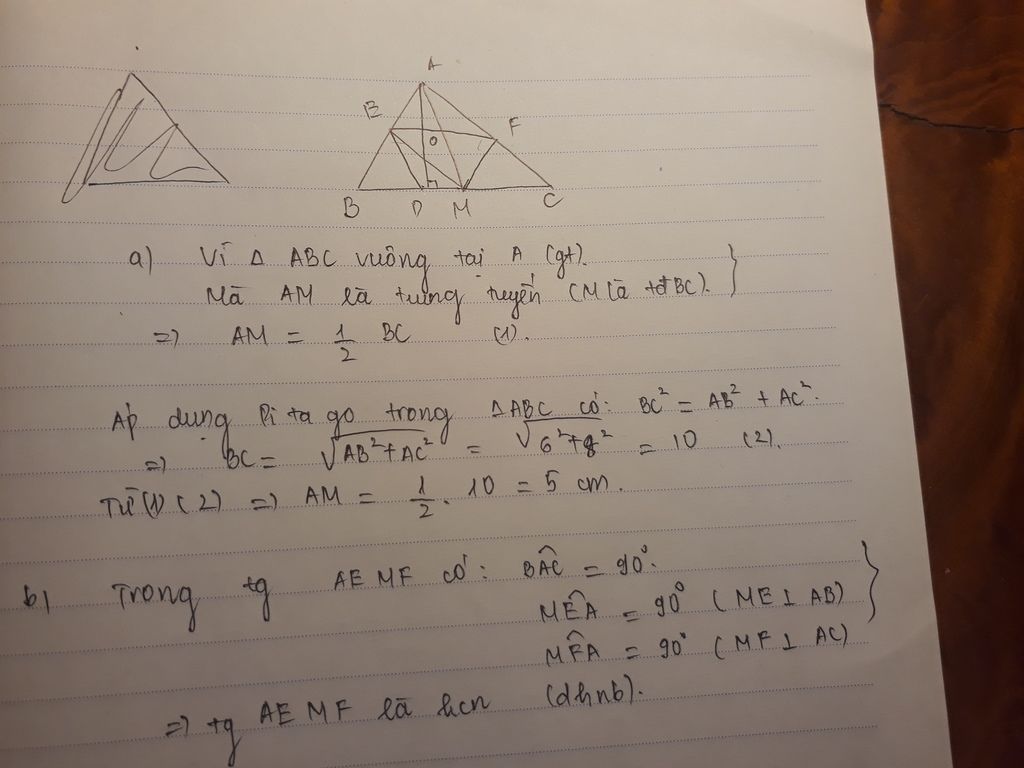 A
E
F
O
B D M C
a) Vì Δ ABC vuông tại A (gt).
Mà AM là trung tuyến (M là tđ BC).
=> AM = 1/2 BC (1).
Áp dụng Pi ta go trong ΔABC có: BC² = AB² + AC².
=> BC = √AB²+AC² = √6²+8² = 10 (2).
Từ (1) (2) => AM = 1/2 . 10 = 5 cm.
b) Trong tg AEMF có: BÂC = 90°.
MÊA = 90° (ME ⊥ AB)
MF̂A = 90° (MF ⊥ AC)
=> tg AEMF là hcn (dhnb).